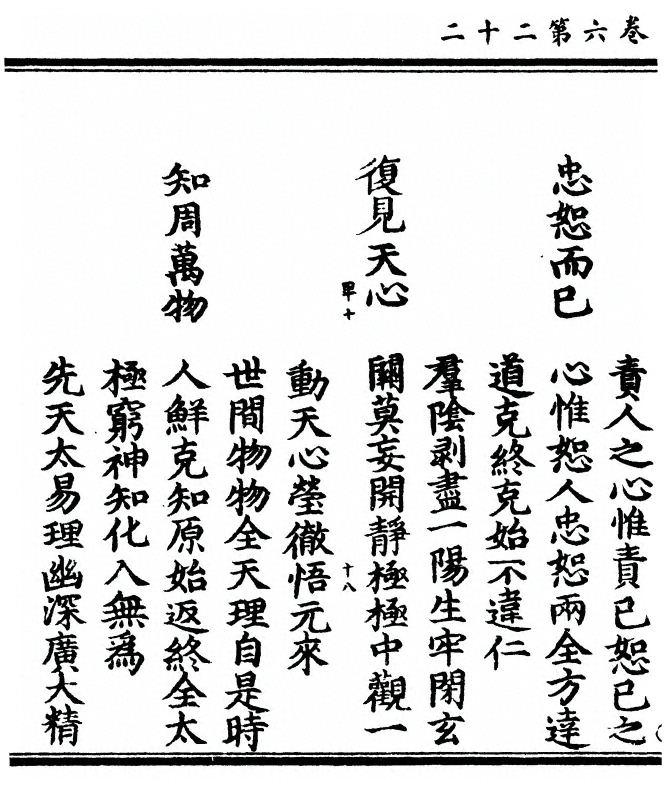 卷六第二十二
忠恕而已
責人之心惟責已恕已之
心惟恕人忠恕兩全方達
道克終克始不違仁
復見天心
羣陰剥盡一陽生牢閉玄
關莫妄開靜極極中觀一
動天心瑩徹悟元來
十八
知周萬物
世間物物全天理自是時
人鮮克知原始返終全太
極窮神知化入無爲
先天太易理幽深廣大精